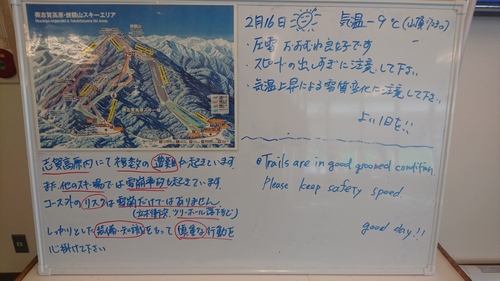 奥志賀高原・焼額山スキーエリア
2月16日 気温-9℃(山頂7:30)
・圧雪 おおむね良好です
・スピードの出しすぎに注意して下さい
・気温上昇による雪質変化に注意して下さい
よい1日を!!
志賀高原内にて複数の遭難が起きています。
また、他のスキー場では雪崩事故も起きています。
コース外のリスクは雪崩だけではありません
(立木衝突、ツリーホール落下など)
しっかりとした装備・知識をもって慎重な行動を
心掛けて下さい
Trails are in good groomed condition.
Please keep safety speed.
good day!!